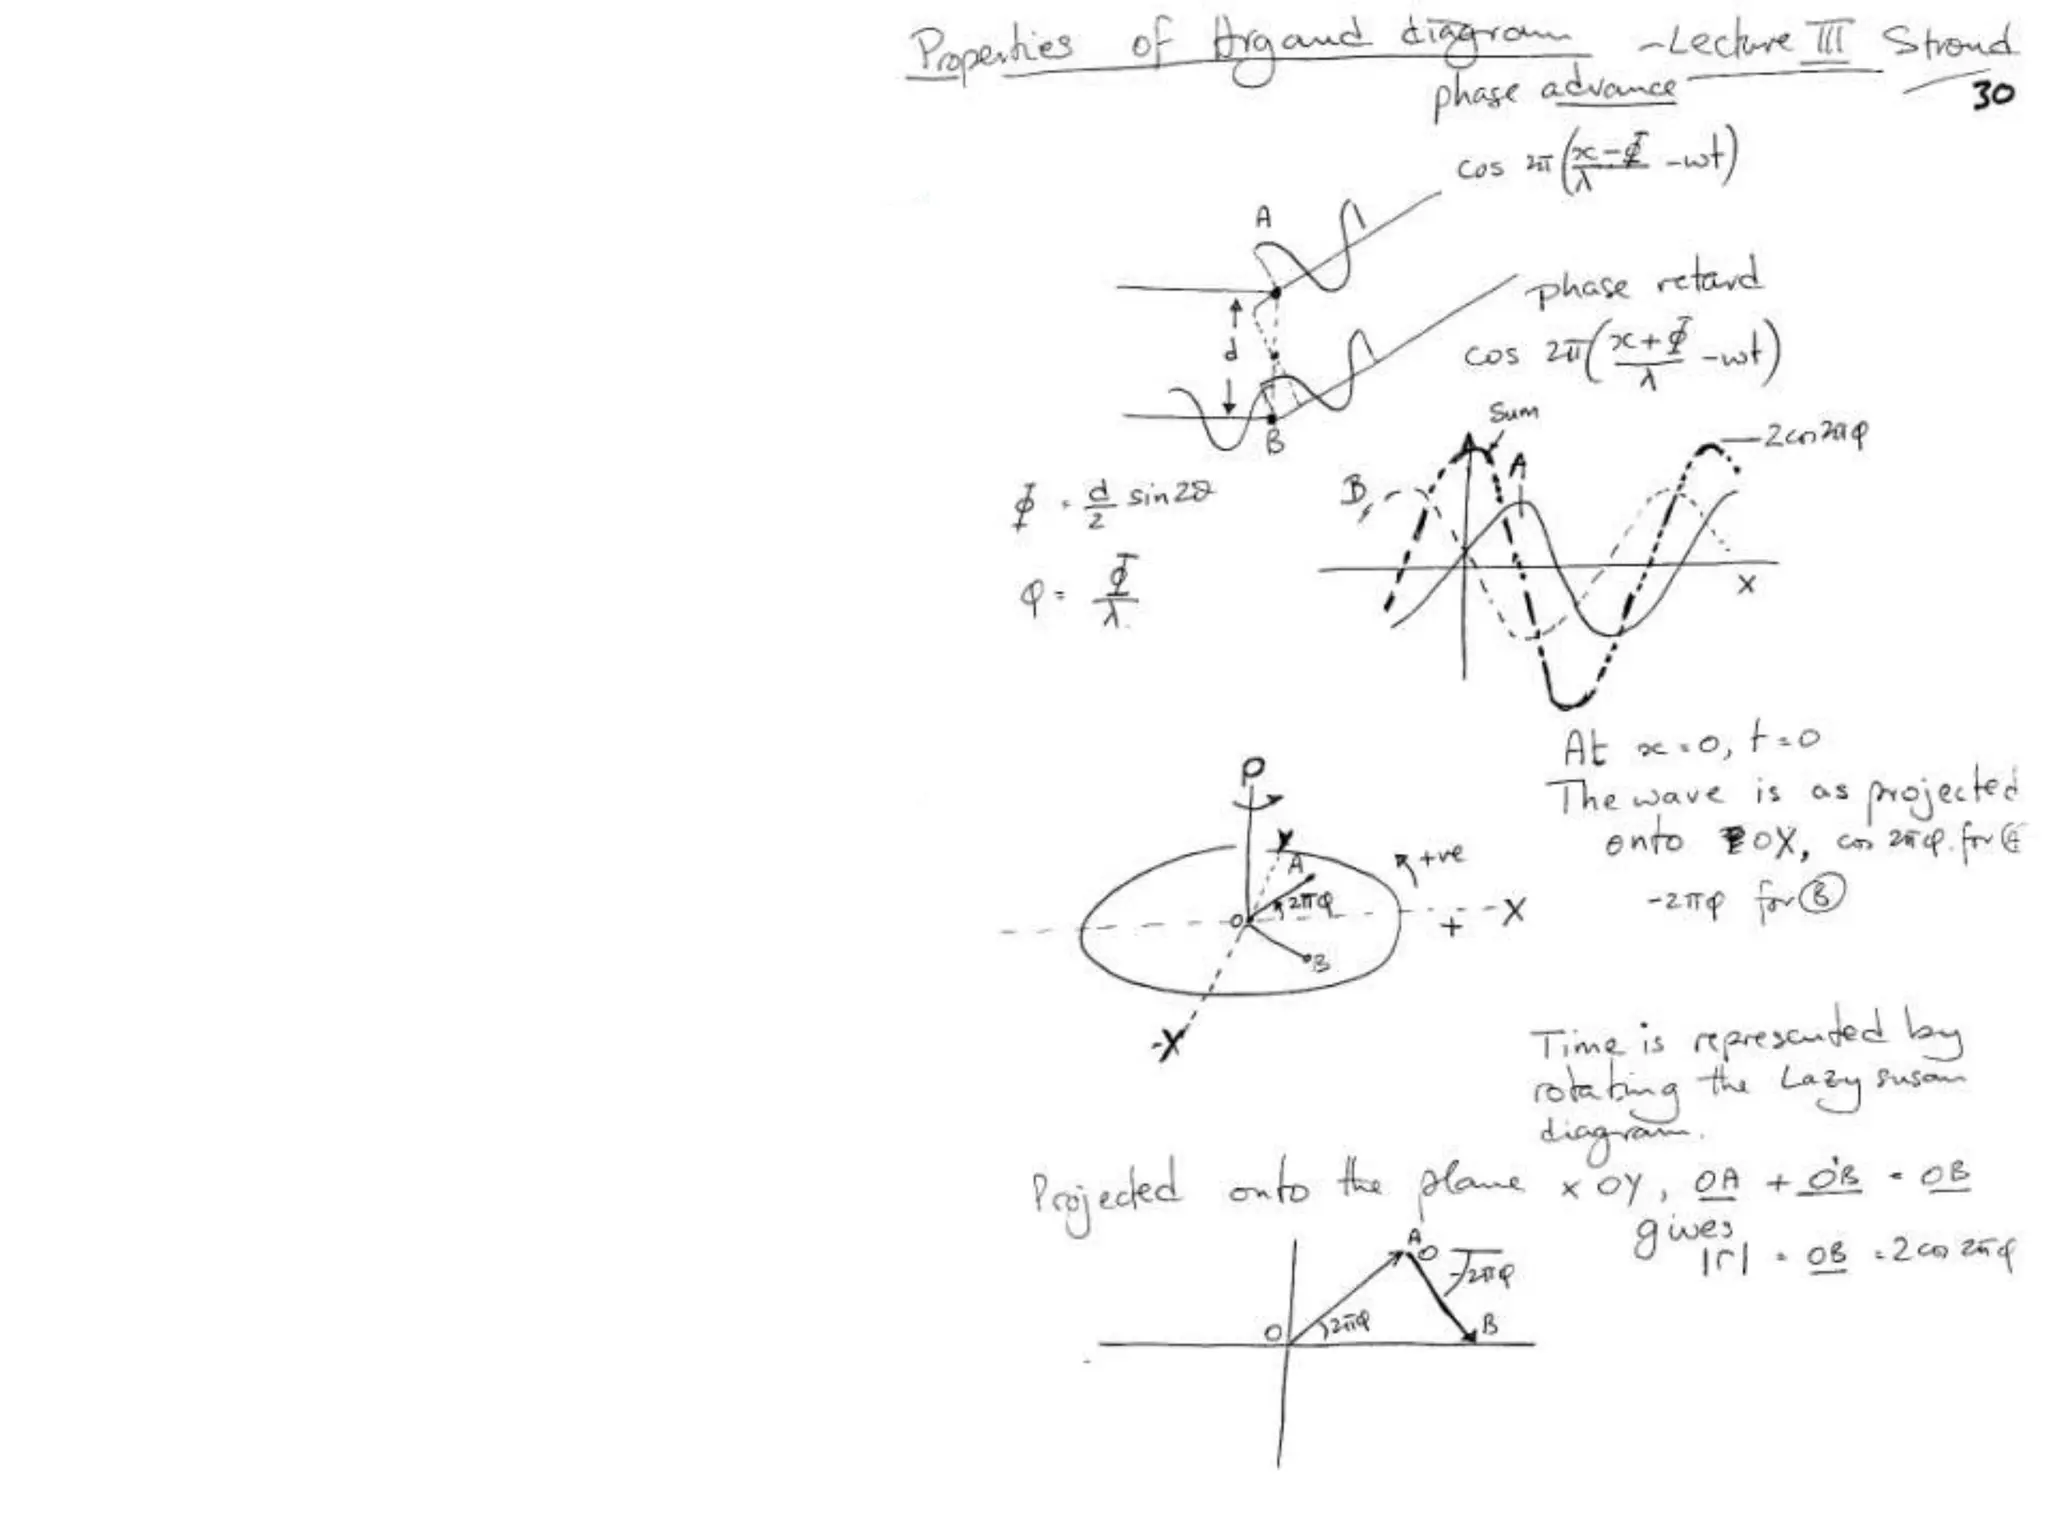 Properties of Argand diagram - Lecture III Stroud
30
phase advance
cos 2π(x-Φ/λ -wt)
A
phase retard
cos 2π(x+Φ/λ -wt)
d
B
Sum
2cos2πφ
B
A
Φ = d/2 sin2θ
φ = Φ/λ
X
At x=0, t=0
The wave is as projected
onto OX, cos 2πφ for
-2πφ for B
P
Y
A
+ve
2πφ
O
+
-X
B
-X
Time is represented by
rotating the Lazy susan
diagram.
Projected onto the plane xOY, OA + O'B = OB
gives
|r| = OB = 2 cos 2πφ
A
O
-2πφ
O
2πφ
B